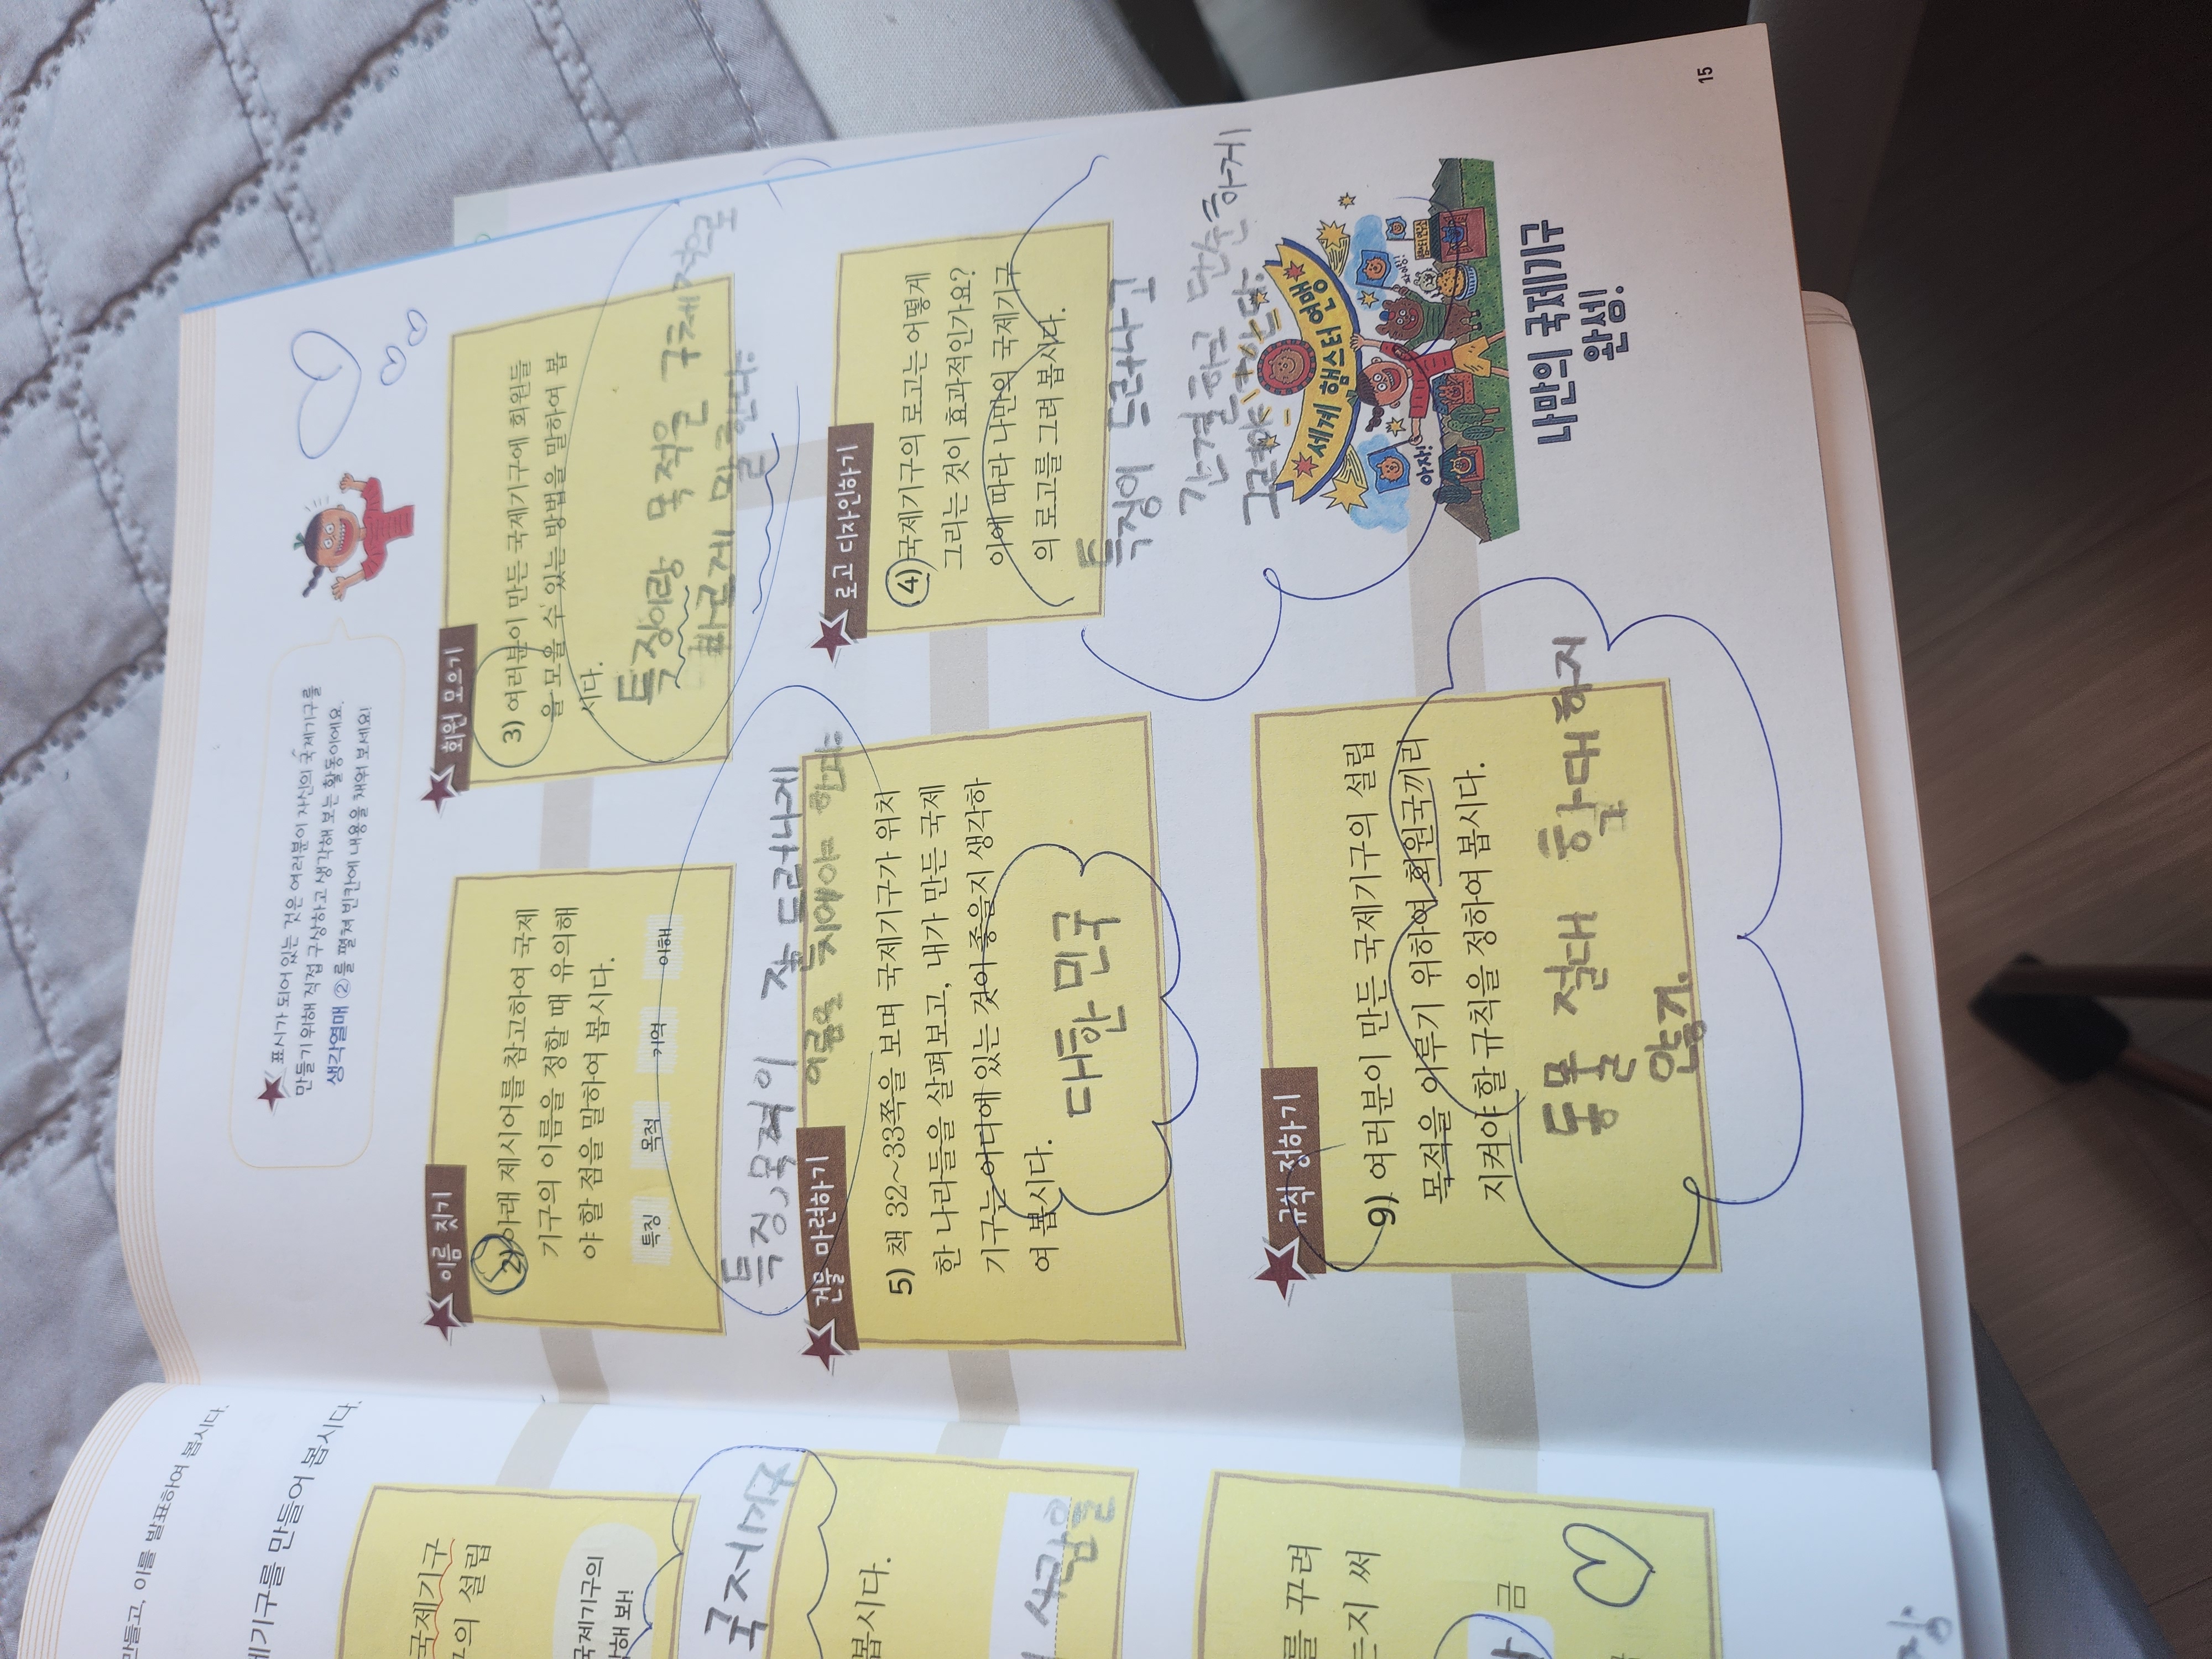 ★ 표시가 되어 있는 것은 여러분이 자신의 국제기구를
만들기 위해 직접 구상하고 생각해 보는 활동이에요.
생각열매 ②를 펼쳐 빈칸에 내용을 채워 보세요!
이름 짓기
2) 아래 제시어를 참고하여 국제
기구의 이름을 정할 때 유의해
야 할 점을 말하여 봅시다.
특징 목적 기억 이해
특징, 목적이 잘 드러나게
이름을 지어야 한다.
회원 모으기
3) 여러분이 만든 국제기구에 회원들
을 모을 수 있는 방법을 말하여 봅
시다.
특징이랑 목적을 구체적으로
빠르게 말한다.
건물 마련하기
5) 책 32~33쪽을 보며 국제기구가 위치
한 나라들을 살펴보고, 내가 만든 국제
기구는 어디에 있는 것이 좋을지 생각하
여 봅시다.
대한민국
로고 디자인하기
4) 국제기구의 로고는 어떻게
그리는 것이 효과적인가요?
이에 따라 나만의 국제기구
의 로고를 그려 봅시다.
특징이 드러나고
간결하고 단순하게
규칙 정하기
9) 여러분이 만든 국제기구의 설립
목적을 이루기 위하여 회원국끼리
지켜야 할 규칙을 정하여 봅시다.
동물 절대 학대하지
않기.
세계 햄스터 연맹
아자!
나만의 국제기구
완성!
15
만들고, 이를 발표하여 봅시다.
제기구를 만들어 봅시다.
국제기구
의 설립
국제기구의
해 봐!
국제기구
봅시다.
사람을
를 꾸려
는지 써
금